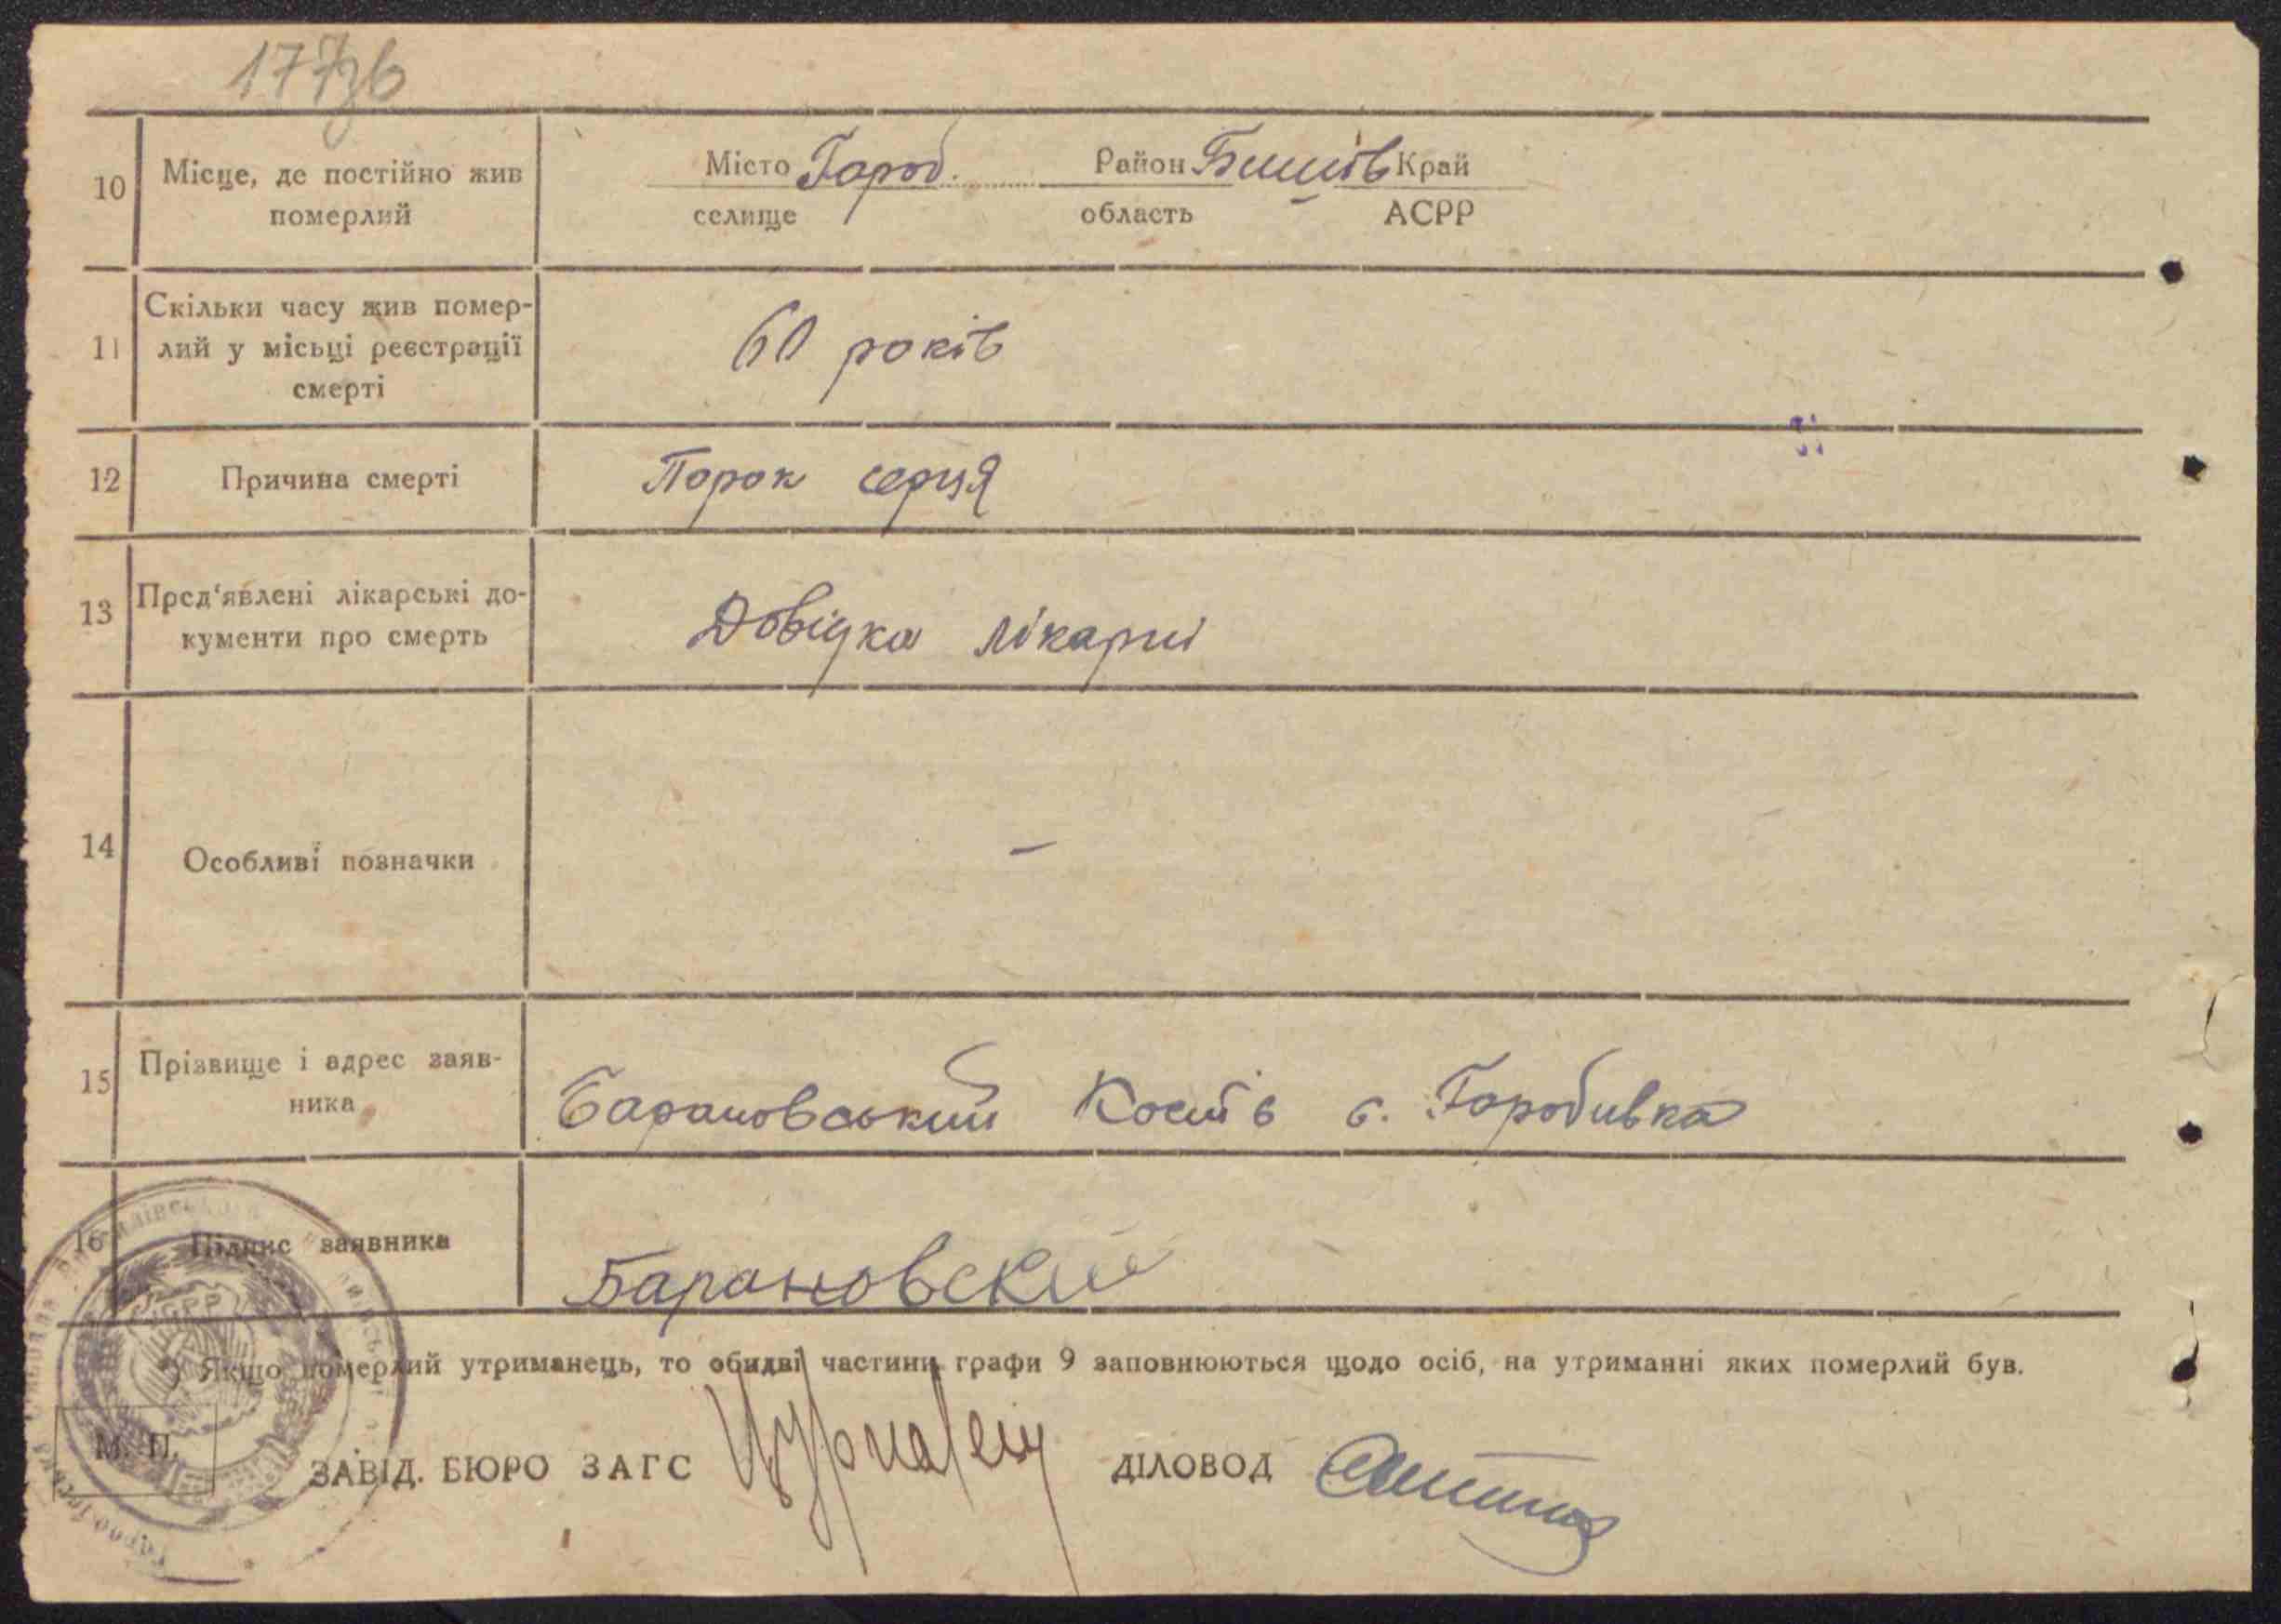 177зв
10 Місце, де постійно жив померлий
Місто Город. Район Бишів Край
селище область АСРР
11 Скільки часу жив помер-
лий у місьці реєстрації
смерті
60 років
12 Причина смерті Порок серця
13 Пред'явлені лікарські до-
кументи про смерть
Довідка лікарні
14 Особливі позначки –
15 Прізвище і адрес заяв-
ника
Барановський Костів с. Горобивка
16 Підпис заявника
Барановский
*) Якщо померлий утриманець, то обидві частини графи 9 заповнюються щодо осіб, на утриманні яких померлий був.
М. П.
ЗАВІД. БЮРО ЗАГС ДІЛОВОД